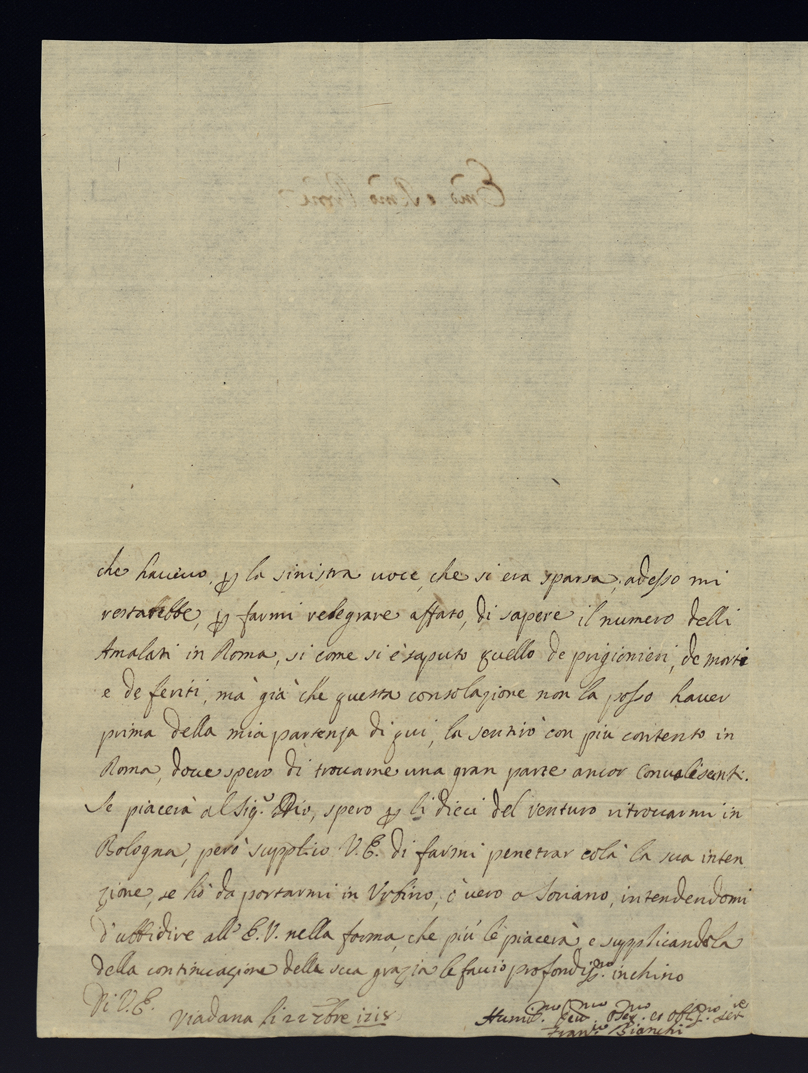 che havevo, ꝑ la sinistra uoce, che si era sparsa, adesso mi
restarebbe, ꝑ farmi relegrare affato, di sapere il numero delli
Amalati in Roma, si come si è saputo quello de prigionieri, de morti
e de feriti, mà già che questa consolazione non la posso hauer
prima della mia partenza di qui, la sentirò con più contento in
Roma, doue spero di trouarne una gran parte ancor Conualesenti.
Se piacerà al Sig.r Dio, spero ꝑ li dieci del venturo ritrouarmi in
Bologna, però supplico V.E. di farmi penetrar colà la sua inten
zione, se hò da portarmi in Vrbino, ò uero a Soriano, intendendomi
d'ubidire all' E.V. nella forma, che più le piacerà, e supplicandola
della continuazione della sua grazia le faccio profondis.mo inchino
Di V.E.
Viadana li 22 7bre 1718
Humil.mo Deu.mo Oseq.mo et Oblig.mo Ser.re
Fran.co Bianchi